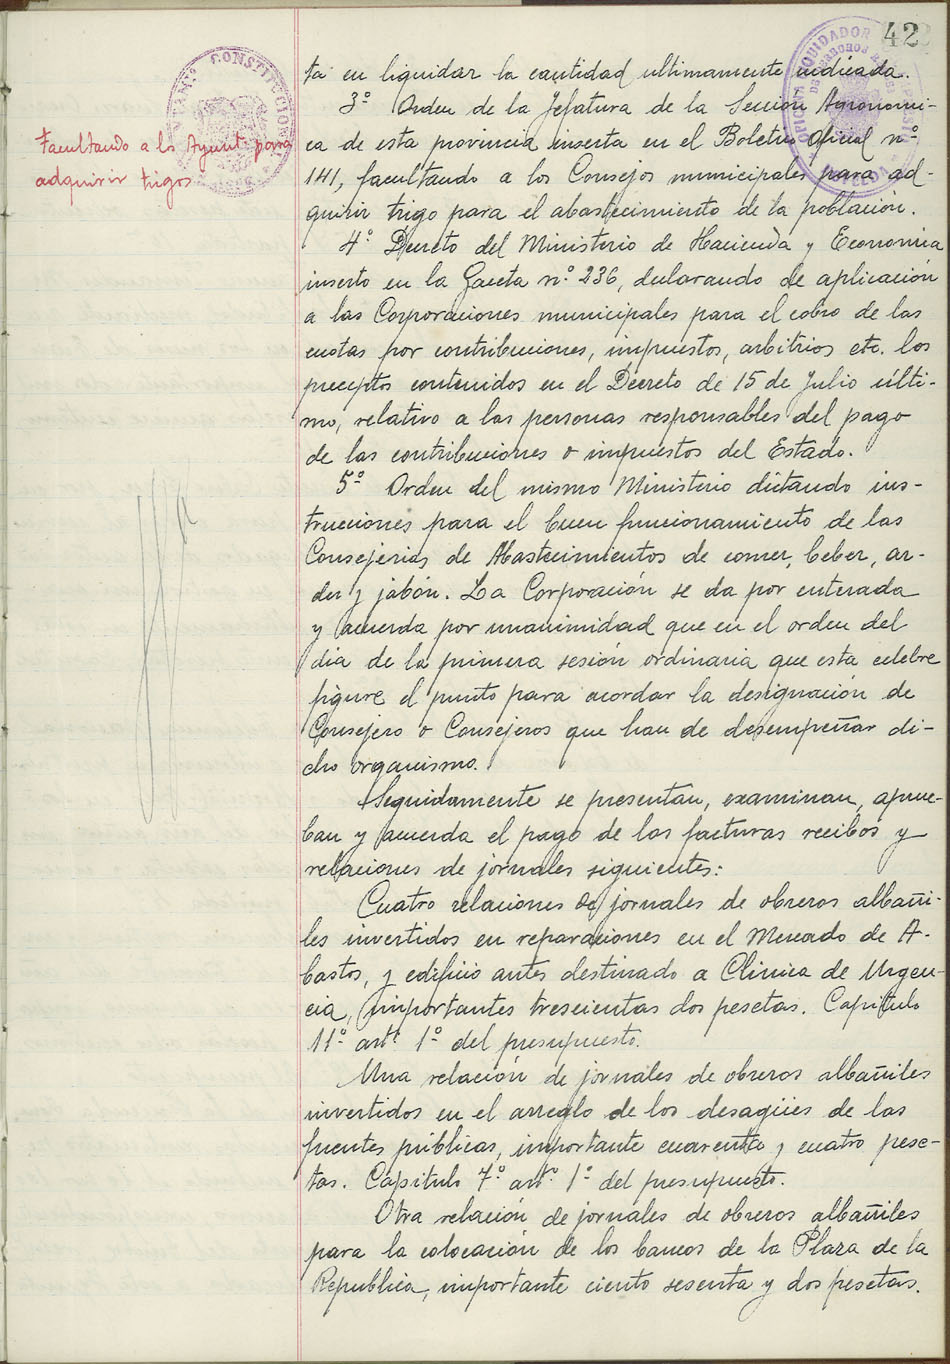 42
ta en liquidar la cantidad ultimamente indicada.
3º Orden de la Jefatura de la Sección Agronomi-
Facultando a los Ayunt. para
ca de esta provincia inserta en el Boletin Oficial nº
adquirir trigos
141, facultando a los Consejos municipales para ad-
quirir trigo para el abastecimiento de la población.
4º Decreto del Ministerio de Hacienda y Economia
inserto en la Gaceta nº 236, declarando de aplicación
a las Corporaciones municipales para el cobro de las
cuotas por contribuciones, impuestos, arbitrios etc. los
preceptos contenidos en el Decreto de 15 de Julio últi-
mo, relativo a las personas responsables del pago
de las contribuciones o impuestos del Estado.
5º Orden del mismo Ministerio dictando ins-
trucciones para el buen funcionamiento de las
Consejerias de Abastecimientos de comer, beber, ar-
der y jabón. La Corporación se da por enterada
y acuerda por unanimidad que en el orden del
dia de la primera sesión ordinaria que esta celebre
figure el punto para acordar la designación de
Consejero o Consejeros que han de desempeñar di-
cho organismo.
Seguidamente se presentan, examinan, aprue-
ban y acuerda el pago de las facturas recibos y
relaciones de jornales siguientes:
Cuatro relaciones de jornales de obreros albañi-
les invertidos en reparaciones en el Mercado de A-
bastos, y edificio antes destinado a Clinica de Urgen-
cia, importantes trescientas dos pesetas. Capitulo
11º artº 1º del presupuesto.
Una relación de jornales de obreros albañiles
invertidos en el arreglo de los desagües de las
fuentes públicas, importante cuarenta y cuatro pese-
tas. Capitulo 7º artº 1º del presupuesto.
Otra relación de jornales de obreros albañiles
para la colocación de los bancos de la Plaza de la
Republica, importante ciento sesenta y dos pesetas.